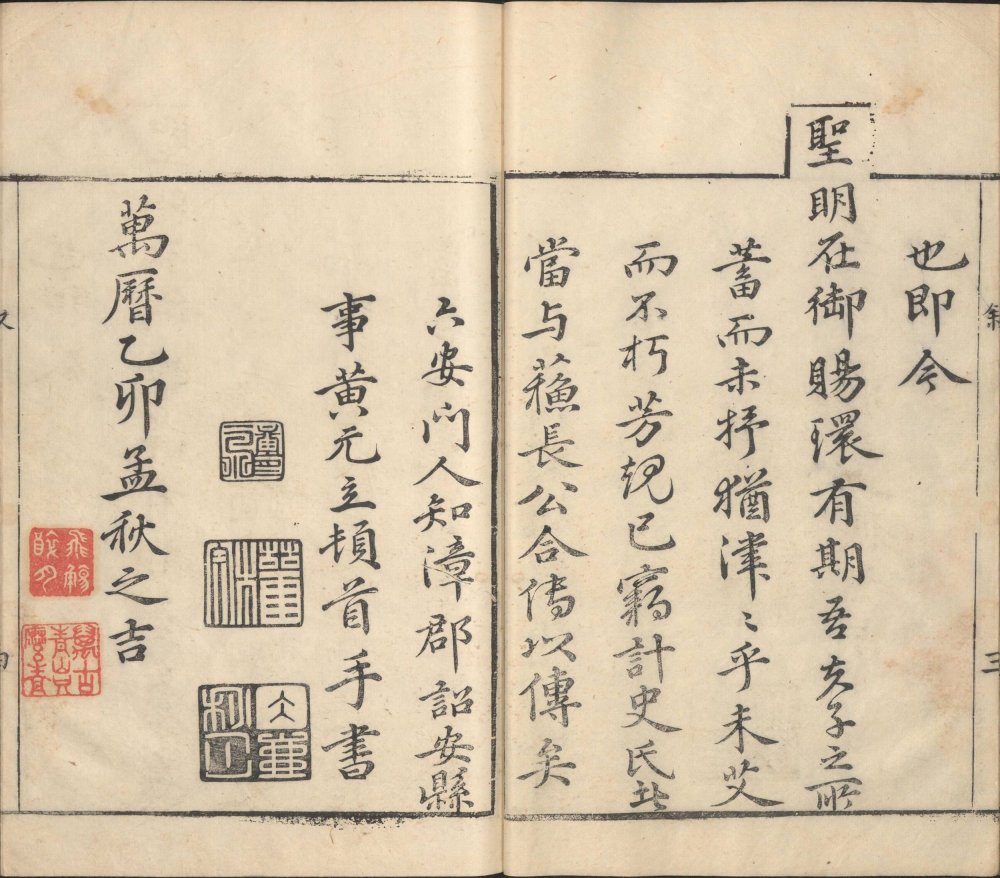 也即今
聖明在御賜環有期吾夫子之所
蓄而未抒猶津〻乎未艾
而不朽芳規已竊計史氏
當与蘓長公合傳以傳矣
六安門人知漳郡詔安縣
事黃元立頓首手書
萬曆乙卯孟秋之吉
叙
三